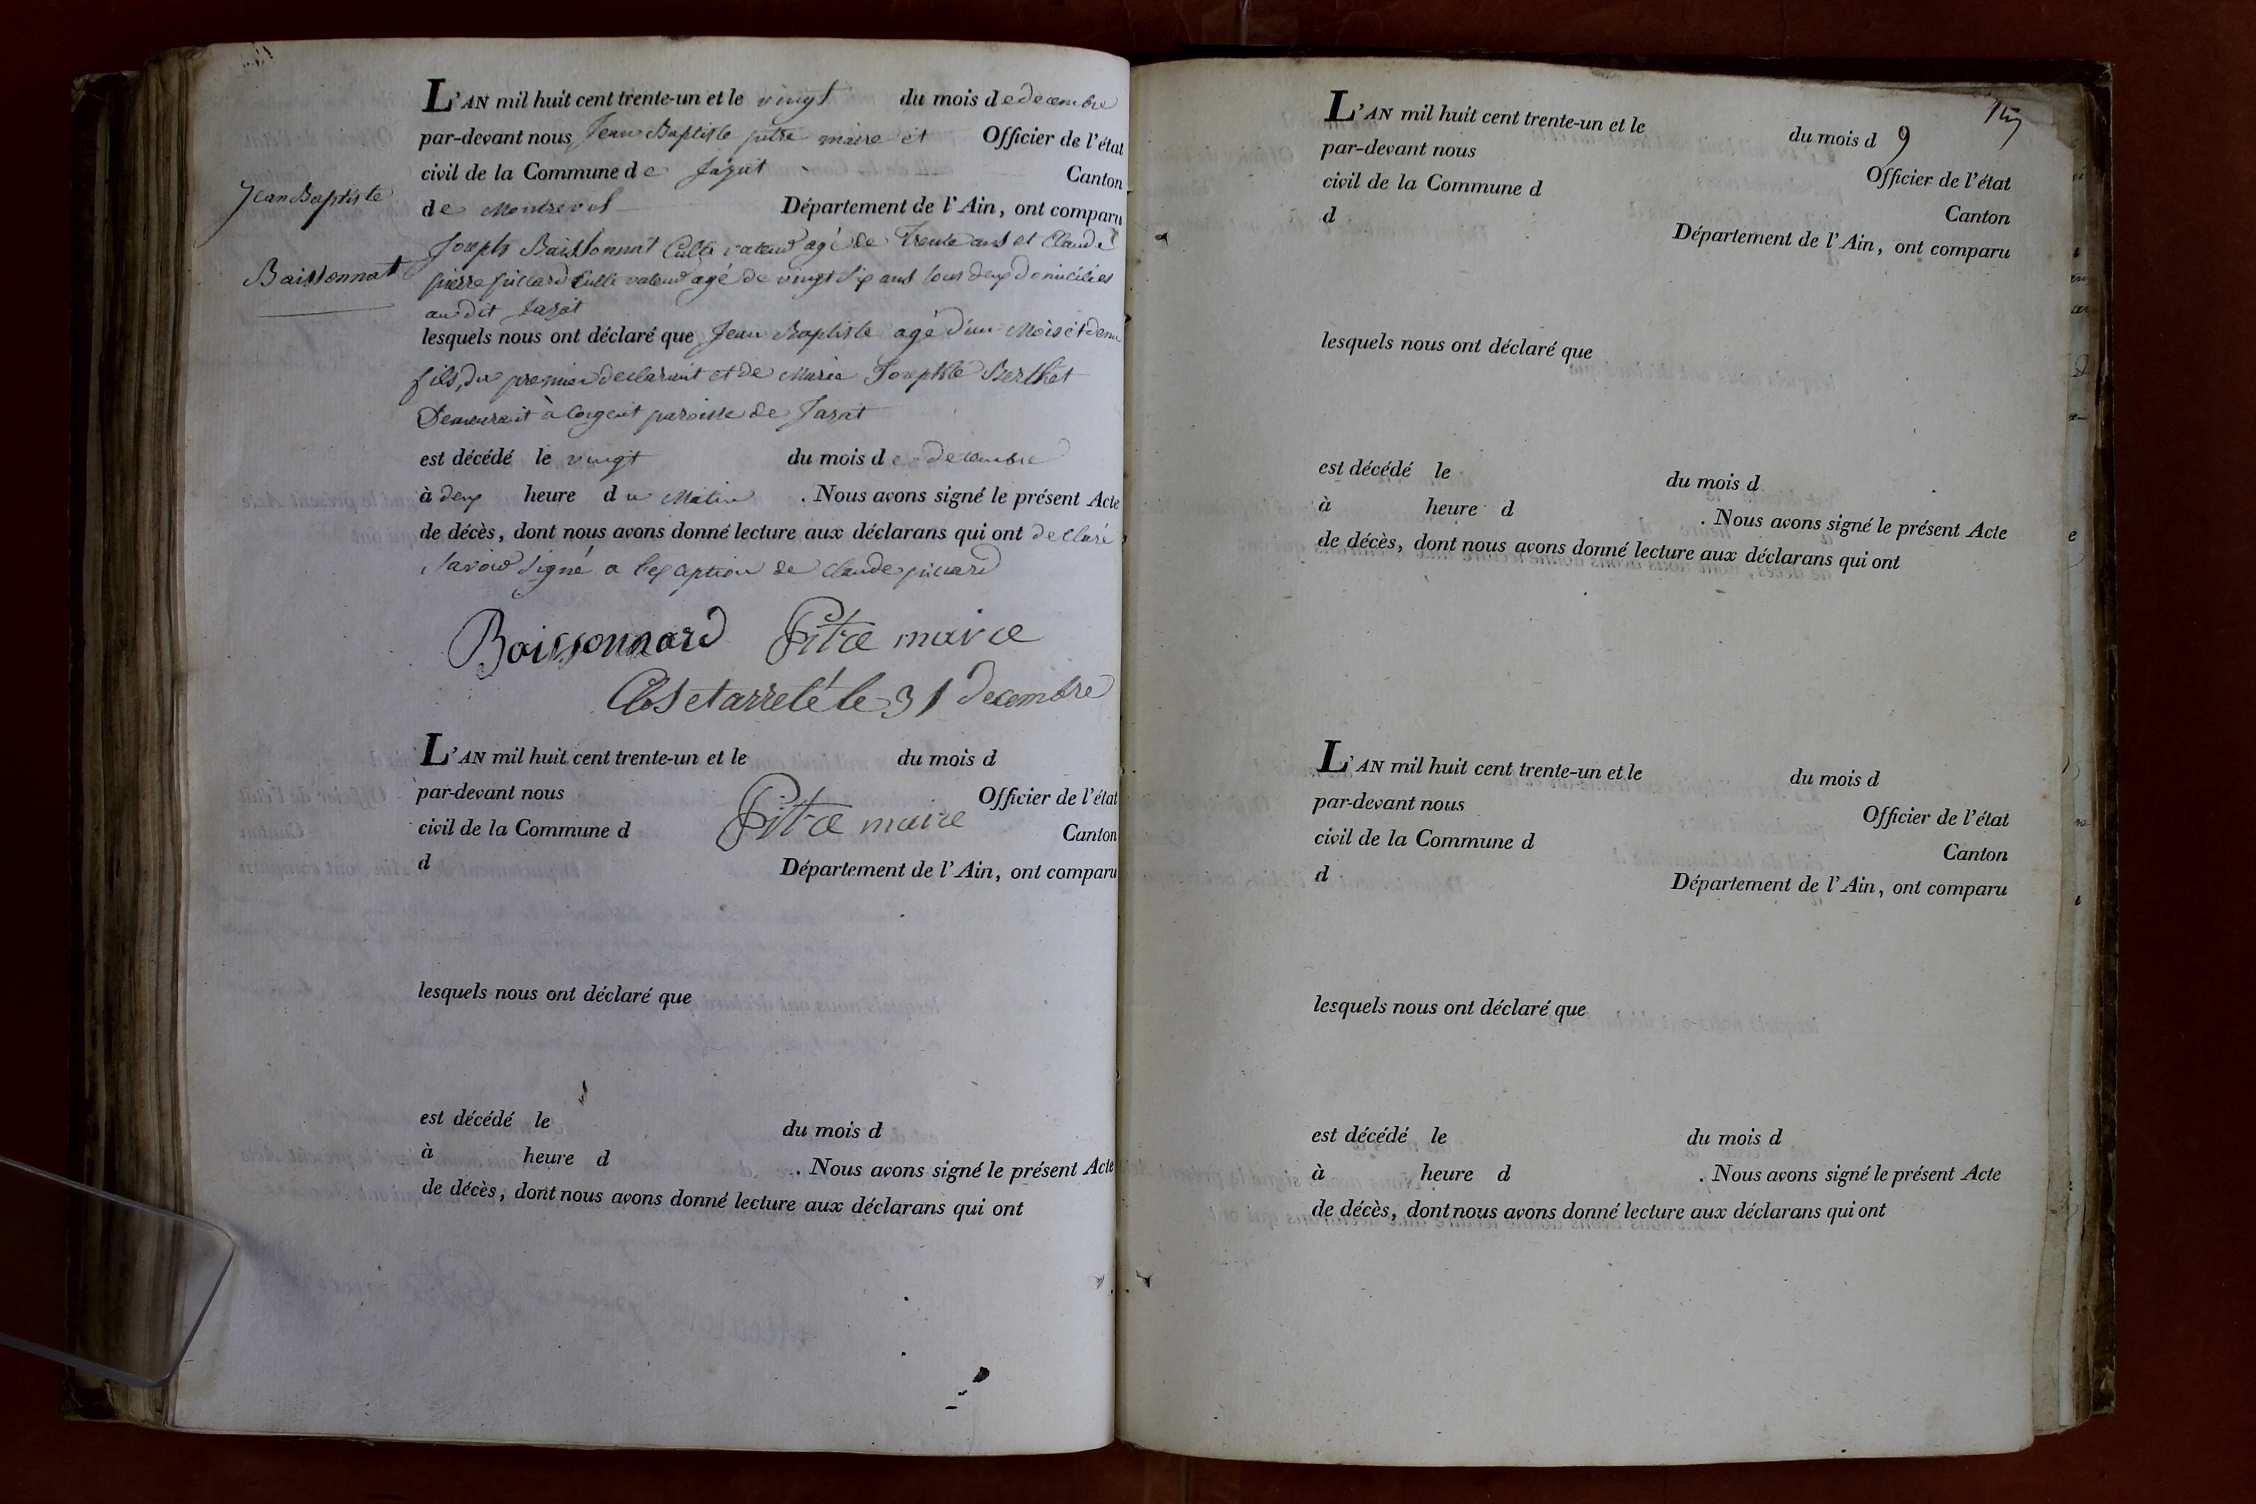 L'AN mil huit cent trente-un et le vingt du mois de decembre
par-devant nous Jean Baptiste pitre maire et Officier de l'état
civil de la Commune de Jayat Canton
de Montrevel Département de l'Ain, ont comparu
Jean Baptiste
Joseph Baissonnat Culti vateur agé de Trente ans et Claude
Baissonnat
pierre pillard Culti vateur agé de vingt six ans tous deux domiciliés
au dit Jayat
lesquels nous ont déclaré que Jean Baptiste agé d'un Mois et demi
fils du premier declarant et de Marie Josephte Berthet
Demeurant à paroisse de Jayat
est décédé le vingt du mois de decembre
à deux heure du Matin . Nous avons signé le présent Acte
de décès, dont nous avons donné lecture aux déclarans qui ont declaré
savoir signé a l'exception de Claude pillard
Baissonnard Pitre maire
Clos et arreté le 31 decembre
L'AN mil huit cent trente-un et le du mois d
par-devant nous Officier de l'état
Pitre maire
civil de la Commune d Canton
d Département de l'Ain, ont comparu
lesquels nous ont déclaré que
est décédé le du mois d
à heure d . Nous avons signé le présent Acte
de décès, dont nous avons donné lecture aux déclarans qui ont
L'AN mil huit cent trente-un et le du mois d 9
par-devant nous Officier de l'état
civil de la Commune d Canton
d Département de l'Ain, ont comparu
lesquels nous ont déclaré que
est décédé le du mois d
à heure d . Nous avons signé le présent Acte
de décès, dont nous avons donné lecture aux déclarans qui ont
L'AN mil huit cent trente-un et le du mois d
par-devant nous Officier de l'état
civil de la Commune d Canton
d Département de l'Ain, ont comparu
lesquels nous ont déclaré que
est décédé le du mois d
à heure d . Nous avons signé le présent Acte
de décès, dont nous avons donné lecture aux déclarans qui ont